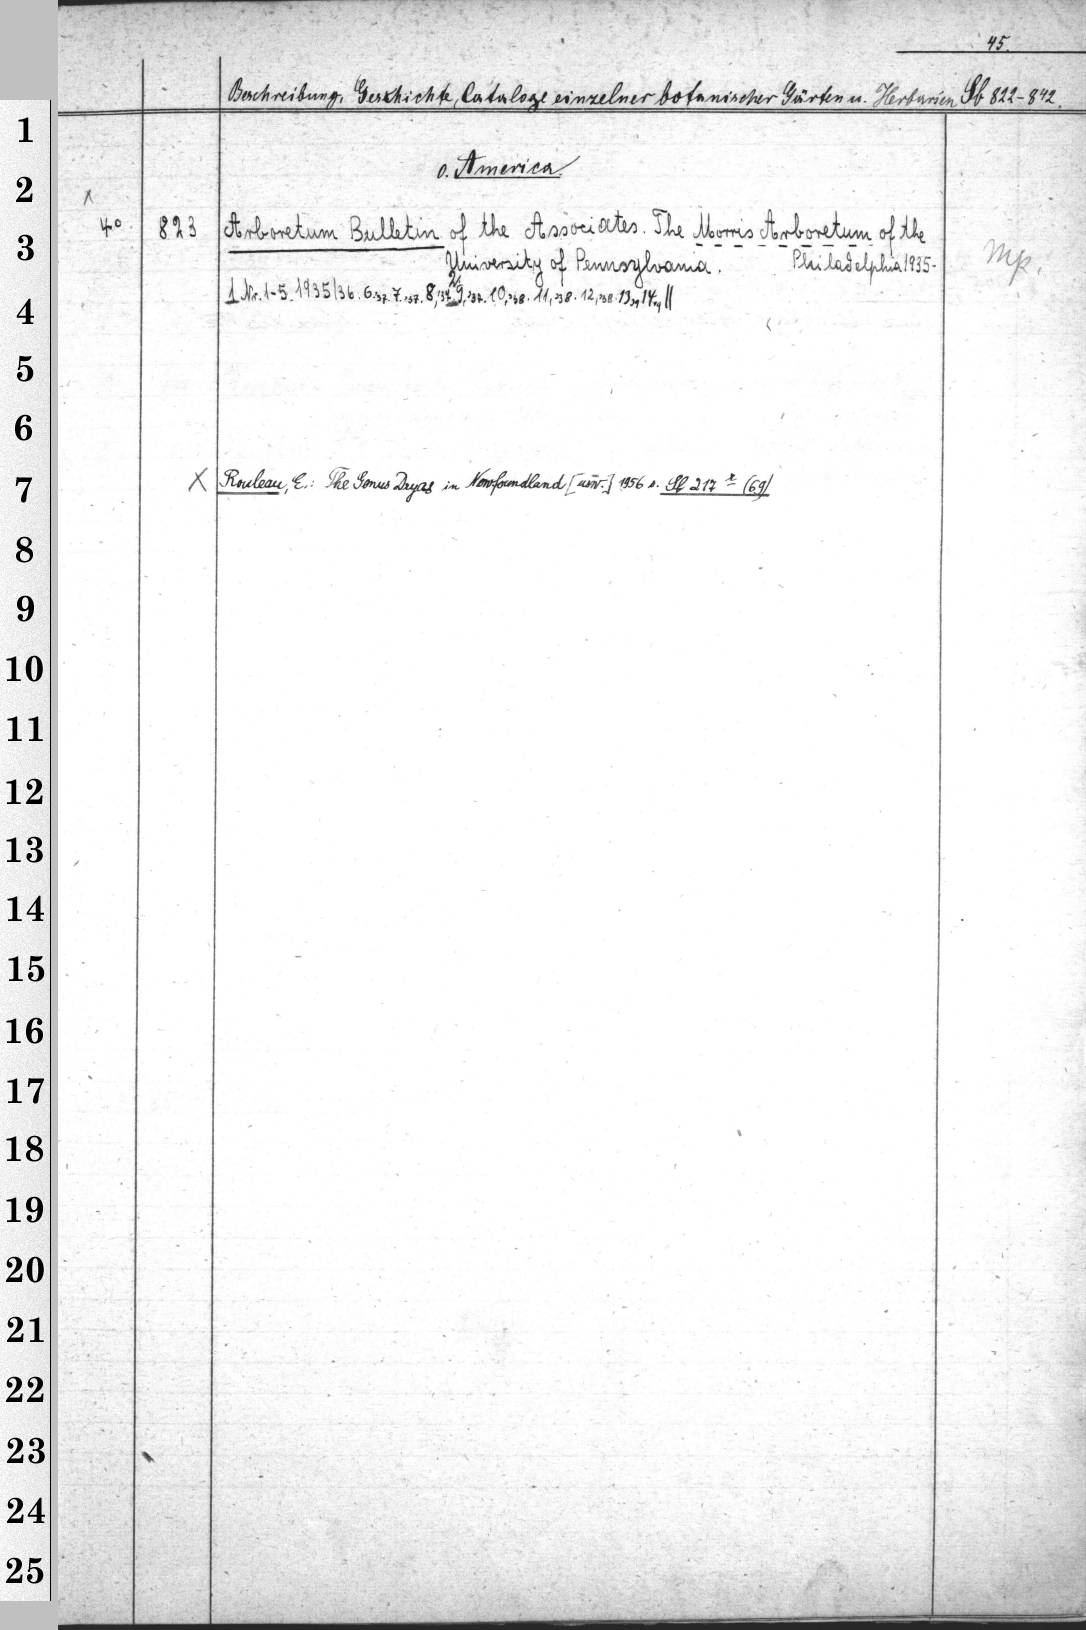 45.
Beschreibung, Geschichte, Cataloge einzelner botanischer Gärten u. Herbarien Sb 822-842.
1
o. America
2
x
4° 823 Arboretum Bulletin of the Associates. The Morris Arboretum of the
3
University of Pennsylvania. Philadelphia 1935-
Mp.
1 Nr. 1-5. 1935/36. 6.'37. 7.'37. 8,'37. 2 9,'37. 10,'38. 11,'38. 12,'38. 13,39 14,39 ||
4
5
6
7
X Rouleau, E.: The Genus Dryas in Newfoundland [usw.] 1956 s. Sf 217 x (69)
8
9
10
11
12
13
14
15
16
17
18
19
20
21
22
23
24
25